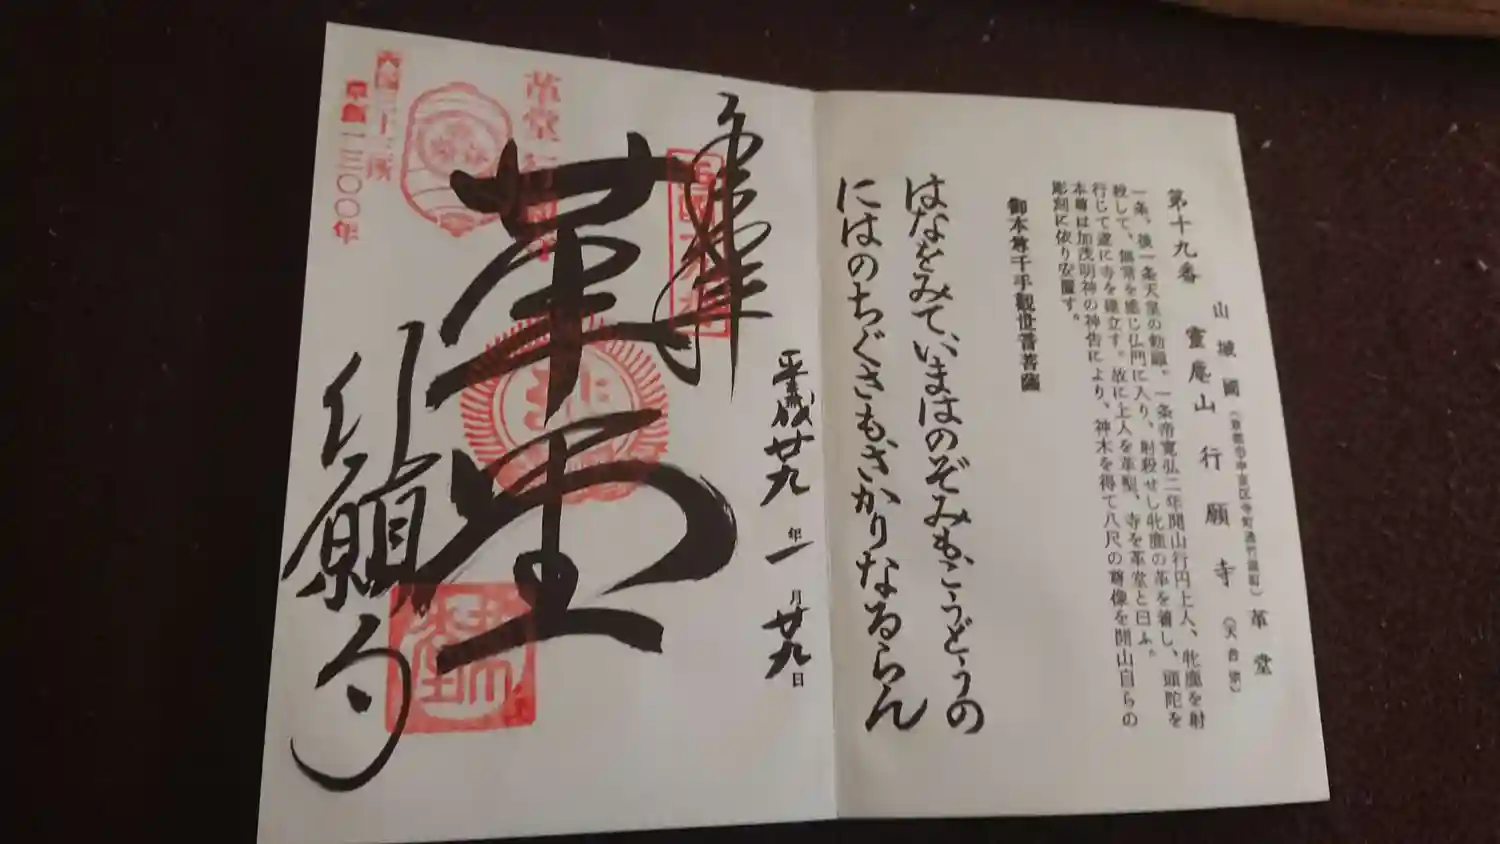 第十九番
山城國（京都市中京区寺町通竹屋町）
霊麀山 行願寺（天台宗） 革堂
一条、後一条天皇の勅願。一条帝寛弘二年開山行円上人、牝鹿を射
殺して、無常を感じ仏門に入り、射殺せし牝鹿の革を着し、頭陀を
行じて遂に寺を建立す。故に上人を革聖、寺を革堂と曰ふ。
本尊は加茂明神の神告により、神木を得て八尺の尊像を開山自らの
彫刻に依り安置す。
御本尊千手觀世音菩薩
はなをみていまはのぞみもこうどうの
にはのちぐさもさかりなるらん
平成廿九年一月廿九日
奉拝
革堂
行願寺
革堂行願寺
西国三十三所
草創一三〇〇年